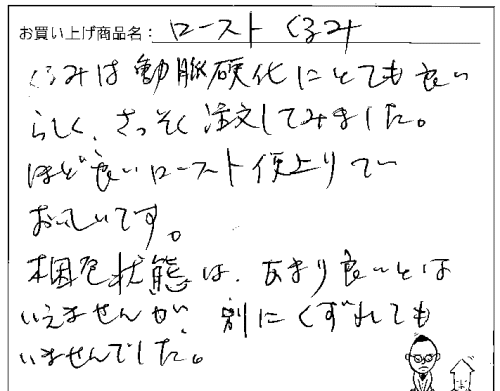 お買い上げ商品名： ローストくるみ
くるみは動脈硬化にとても良い
らしく、さっそく注文してみました。
ほど良いロースト仕上りで
おいしいです。
梱包状態は、あまり良いとは
いえませんが、別にくずれても
いませんでした。